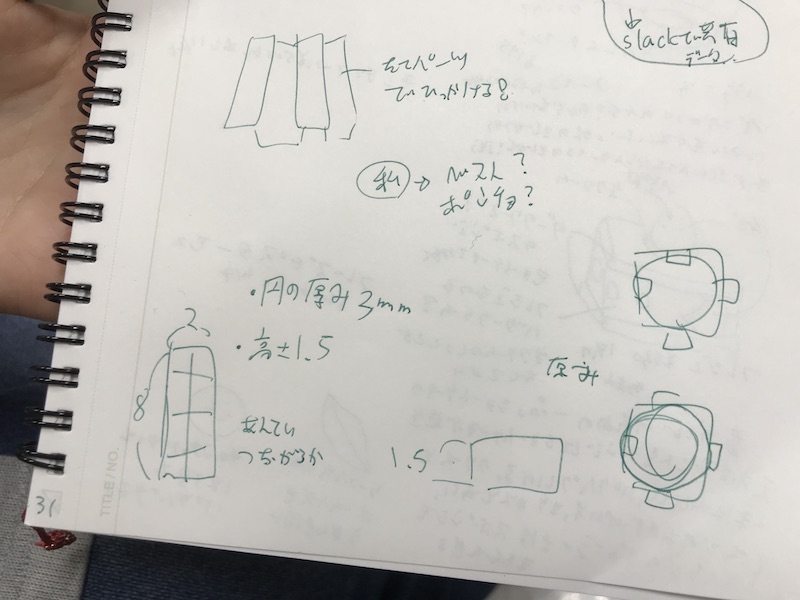 slackで共有
データ
たてパーツ
でひっかける?
私→ベスト?
ポンチョ?
・円の厚み3mm
・高さ1.5
2
8
あんてい
つながるか
厚み
1.5
31
TITLE/NO.